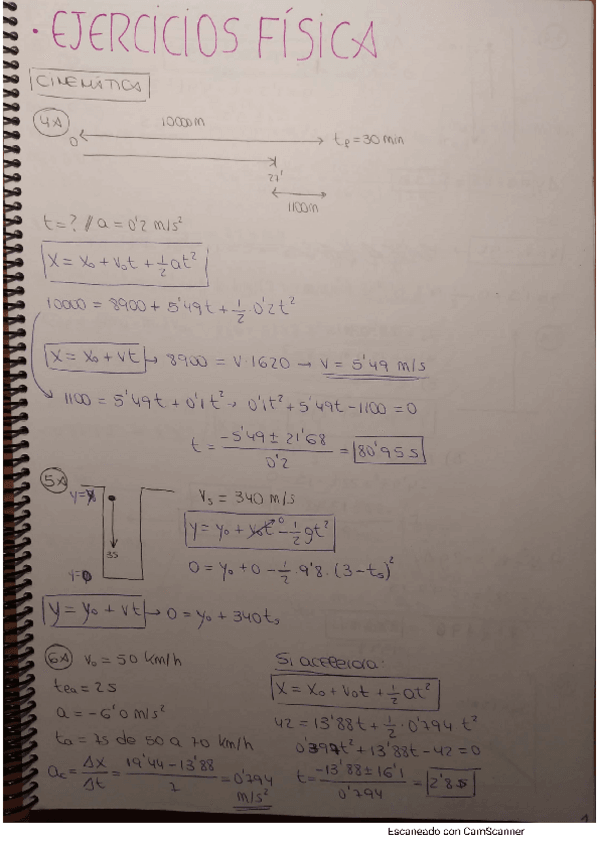 · EJERCICIOS FÍSICA
CINEMÁTICA
4A
10000m
0
t_f = 30 min
27'
1100m
t = ? // a = 0'2 m/s²
x = x₀ + v₀t + ½at²
10000 = 8900 + 5'49t + ½·0'2t²
x = x₀ + vt → 8900 = v·1620 → v = 5'49 m/s
1100 = 5'49t + 0'1t² → 0'1t² + 5'49t - 1100 = 0
t = (-5'49 ± 21'68)/0'2 = 80'95 s
5A
v_s = 340 m/s
3s
y = y₀ + v₀t⁰ - ½gt²
0 = y₀ + 0 - ½·9'8·(3 - t_s)²
y=0
y = y₀ + vt → 0 = y₀ + 340t_s
6A v₀ = 50 km/h
t_ea = 2s
a = -6'0 m/s²
t_a = 7s de 50 a 70 km/h
a_c = Δx/Δt = (19'44 - 13'88)/7 = 0'794 m/s²
Si acelerara:
x = x₀ + v₀t + ½at²
42 = 13'88t + ½·0'794 t²
0'397t² + 13'88t - 42 = 0
t = (-13'88 ± 16'1)/0'794 = 2'8s
1
Escaneado con CamScanner